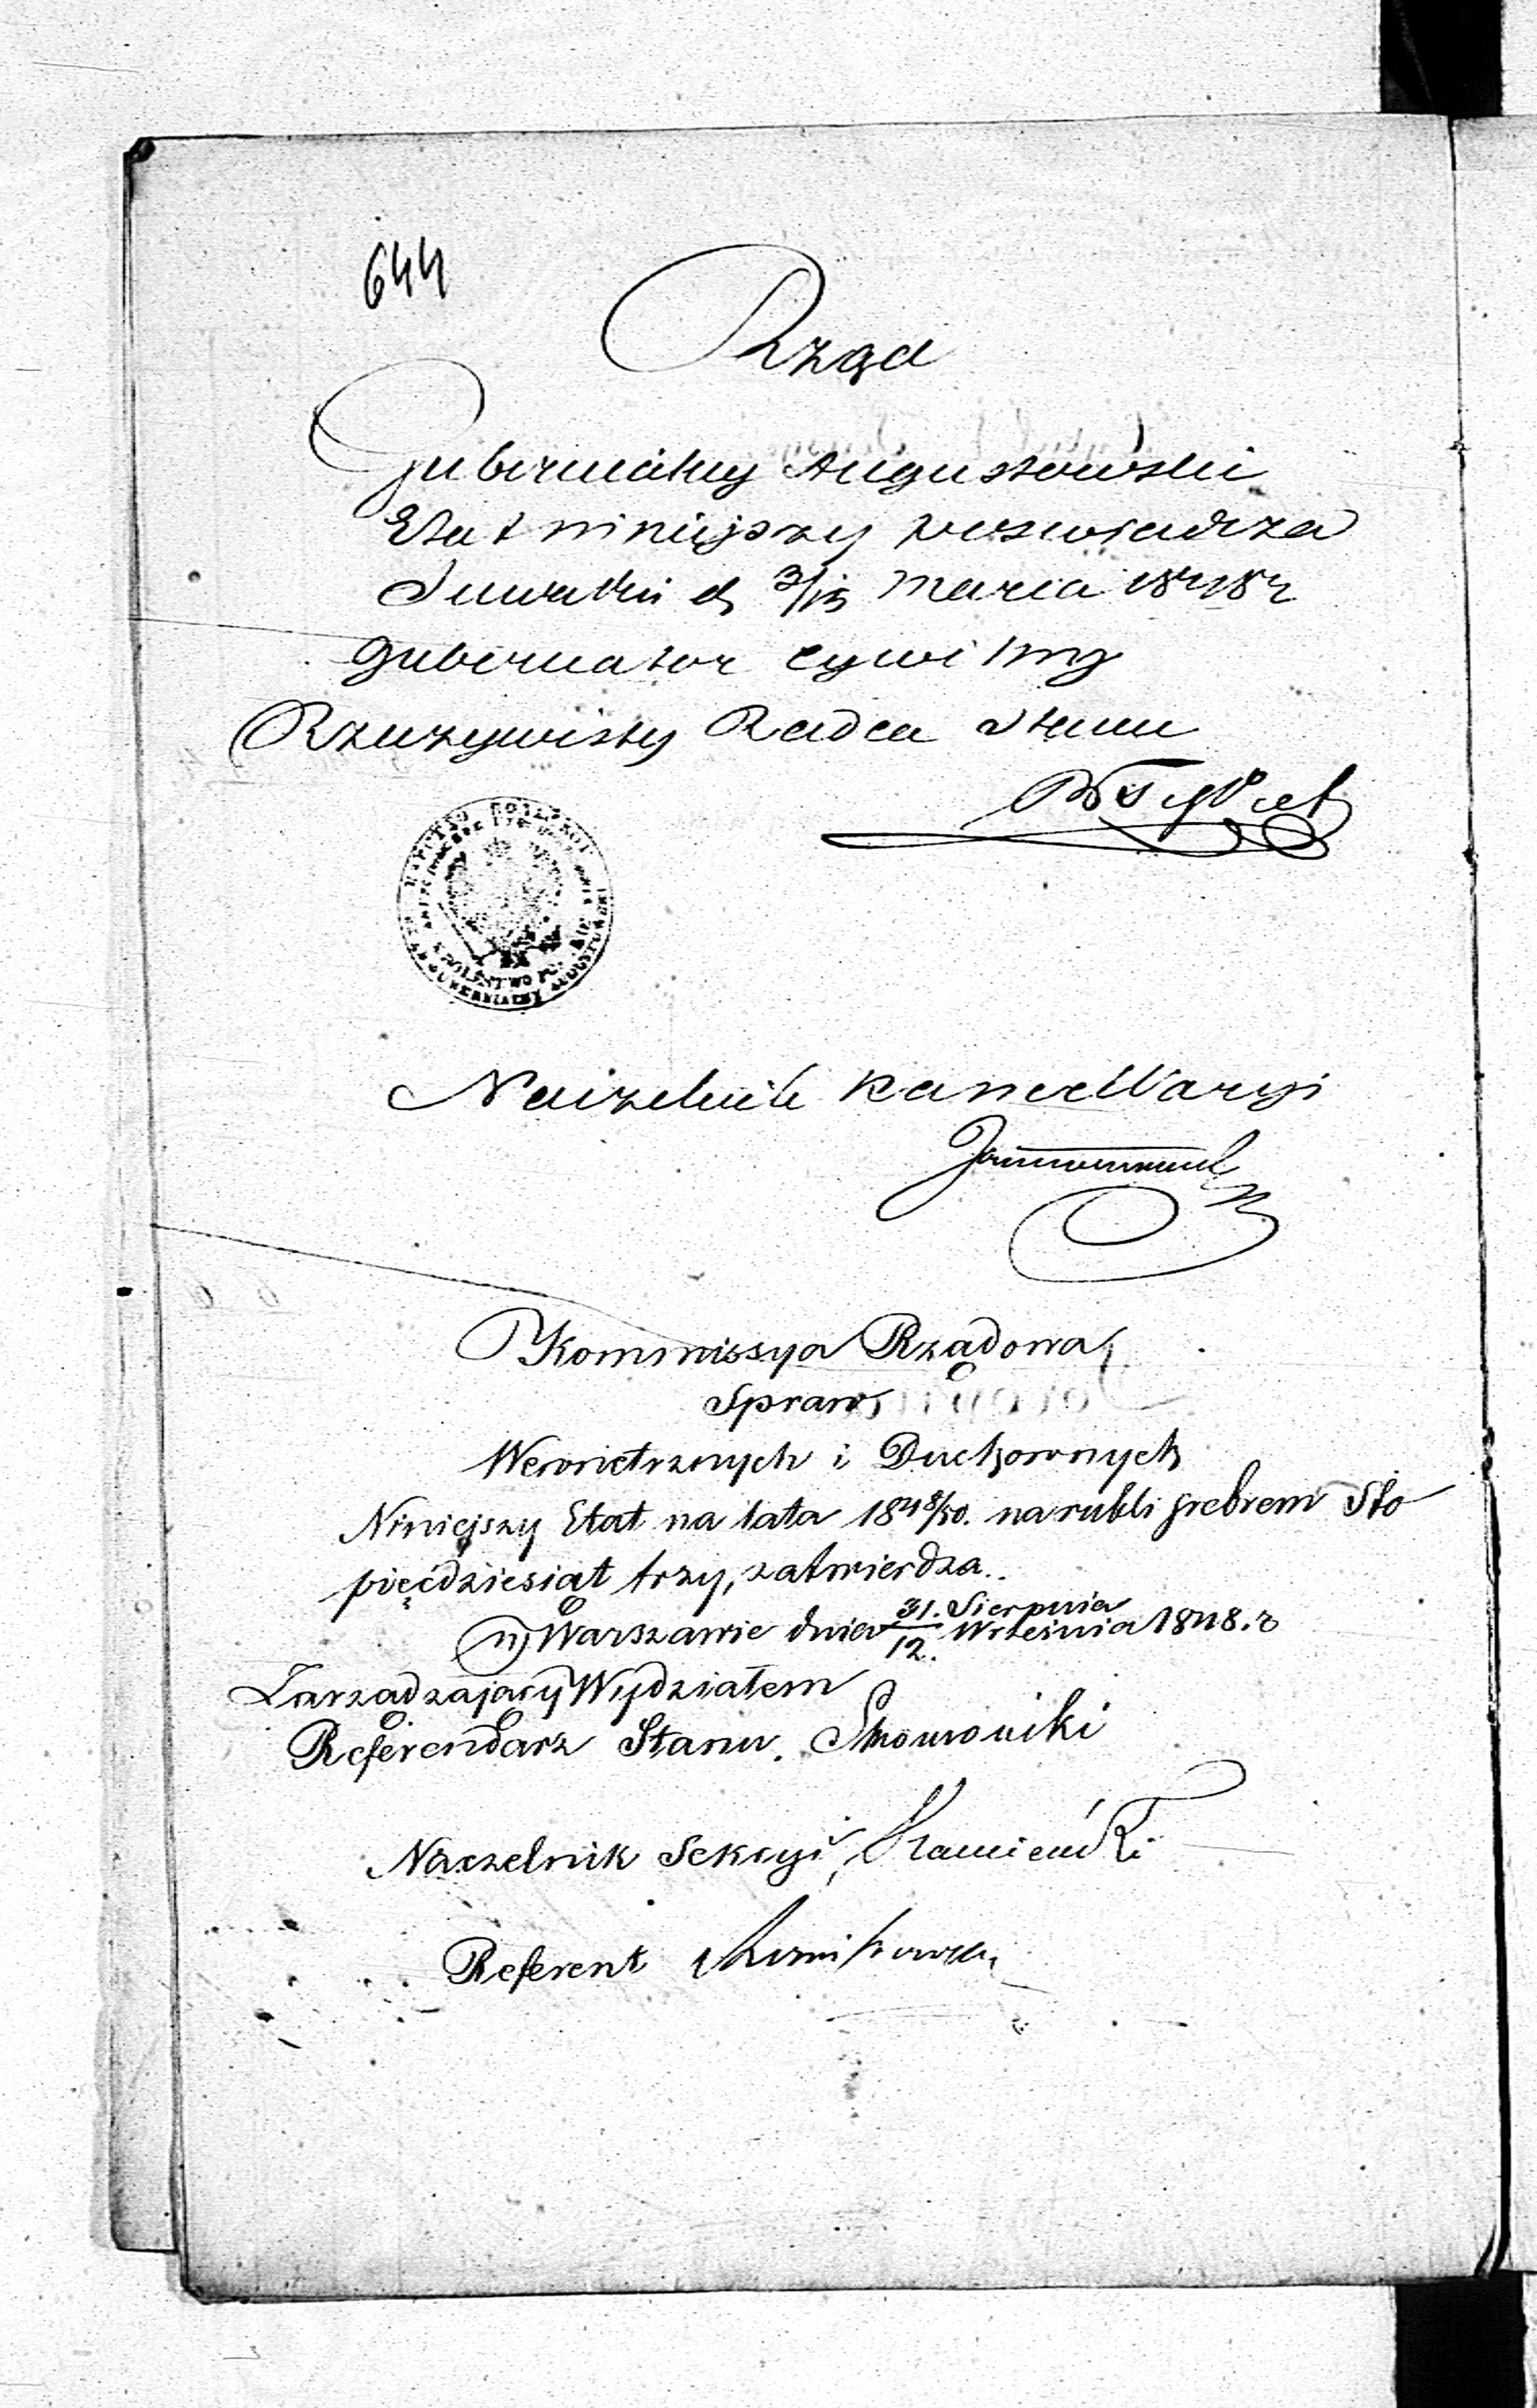 644
Rząd
Gubernialny Augustowski
Etat niniejszy poswiadcza
Suwałki d 3/15 Marca 1848 r
Gubernator Cywilny
Rzeczywisty Radca Stanu
Naczelnik Kancellaryi
Kommissya Rządowa
Spraw
Wewnetrznych i Duchownych
Niniejszy Etat na lata 1848/50. na rubli srebrem Sto
pięćdziesiąt trzy, zatwierdza.
w Warszawie dnia 31. Sierpnia / 12. Września 1848. r
Zarządzający Wydziałem
Referendarz Stanu.
Naczelnik Sekcyi, Kamieński
Referent
KRÓLESTWO POLSKIE
RZĄD GUBERNIALNY AUGUSTOWSKI